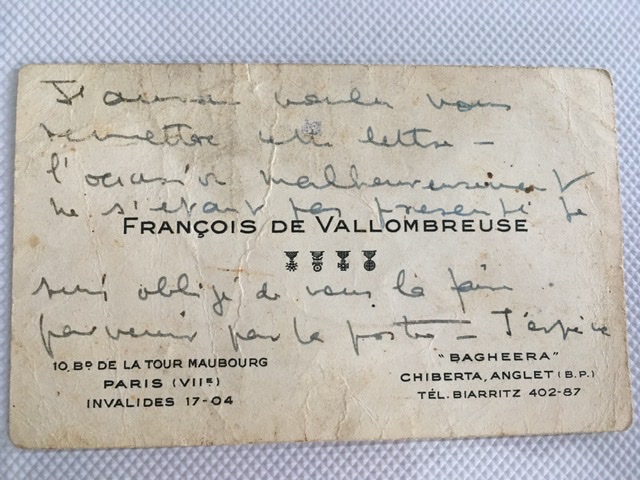 J'aurais voulu vous
remettre cette lettre —
l'occasion malheureusement
ne s'étant pas présenté je
FRANÇOIS DE VALLOMBREUSE
suis obligé de vous la faire
parvenir par la poste — J'espère
10, BD DE LA TOUR MAUBOURG
PARIS (VIIE)
INVALIDES 17-04
"BAGHEERA"
CHIBERTA, ANGLET (B.P.)
TÉL. BIARRITZ 402-87